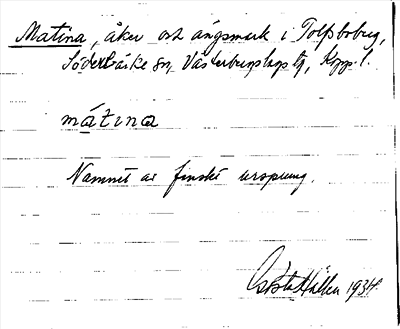 Matina, åker och ängsmark i Tolfsbobyn,
Söderbärke sn, Västerbergslags tg, Kopp. l.
mátina
Namnet av finskt ursprung.
Gösta Hallen 1934.